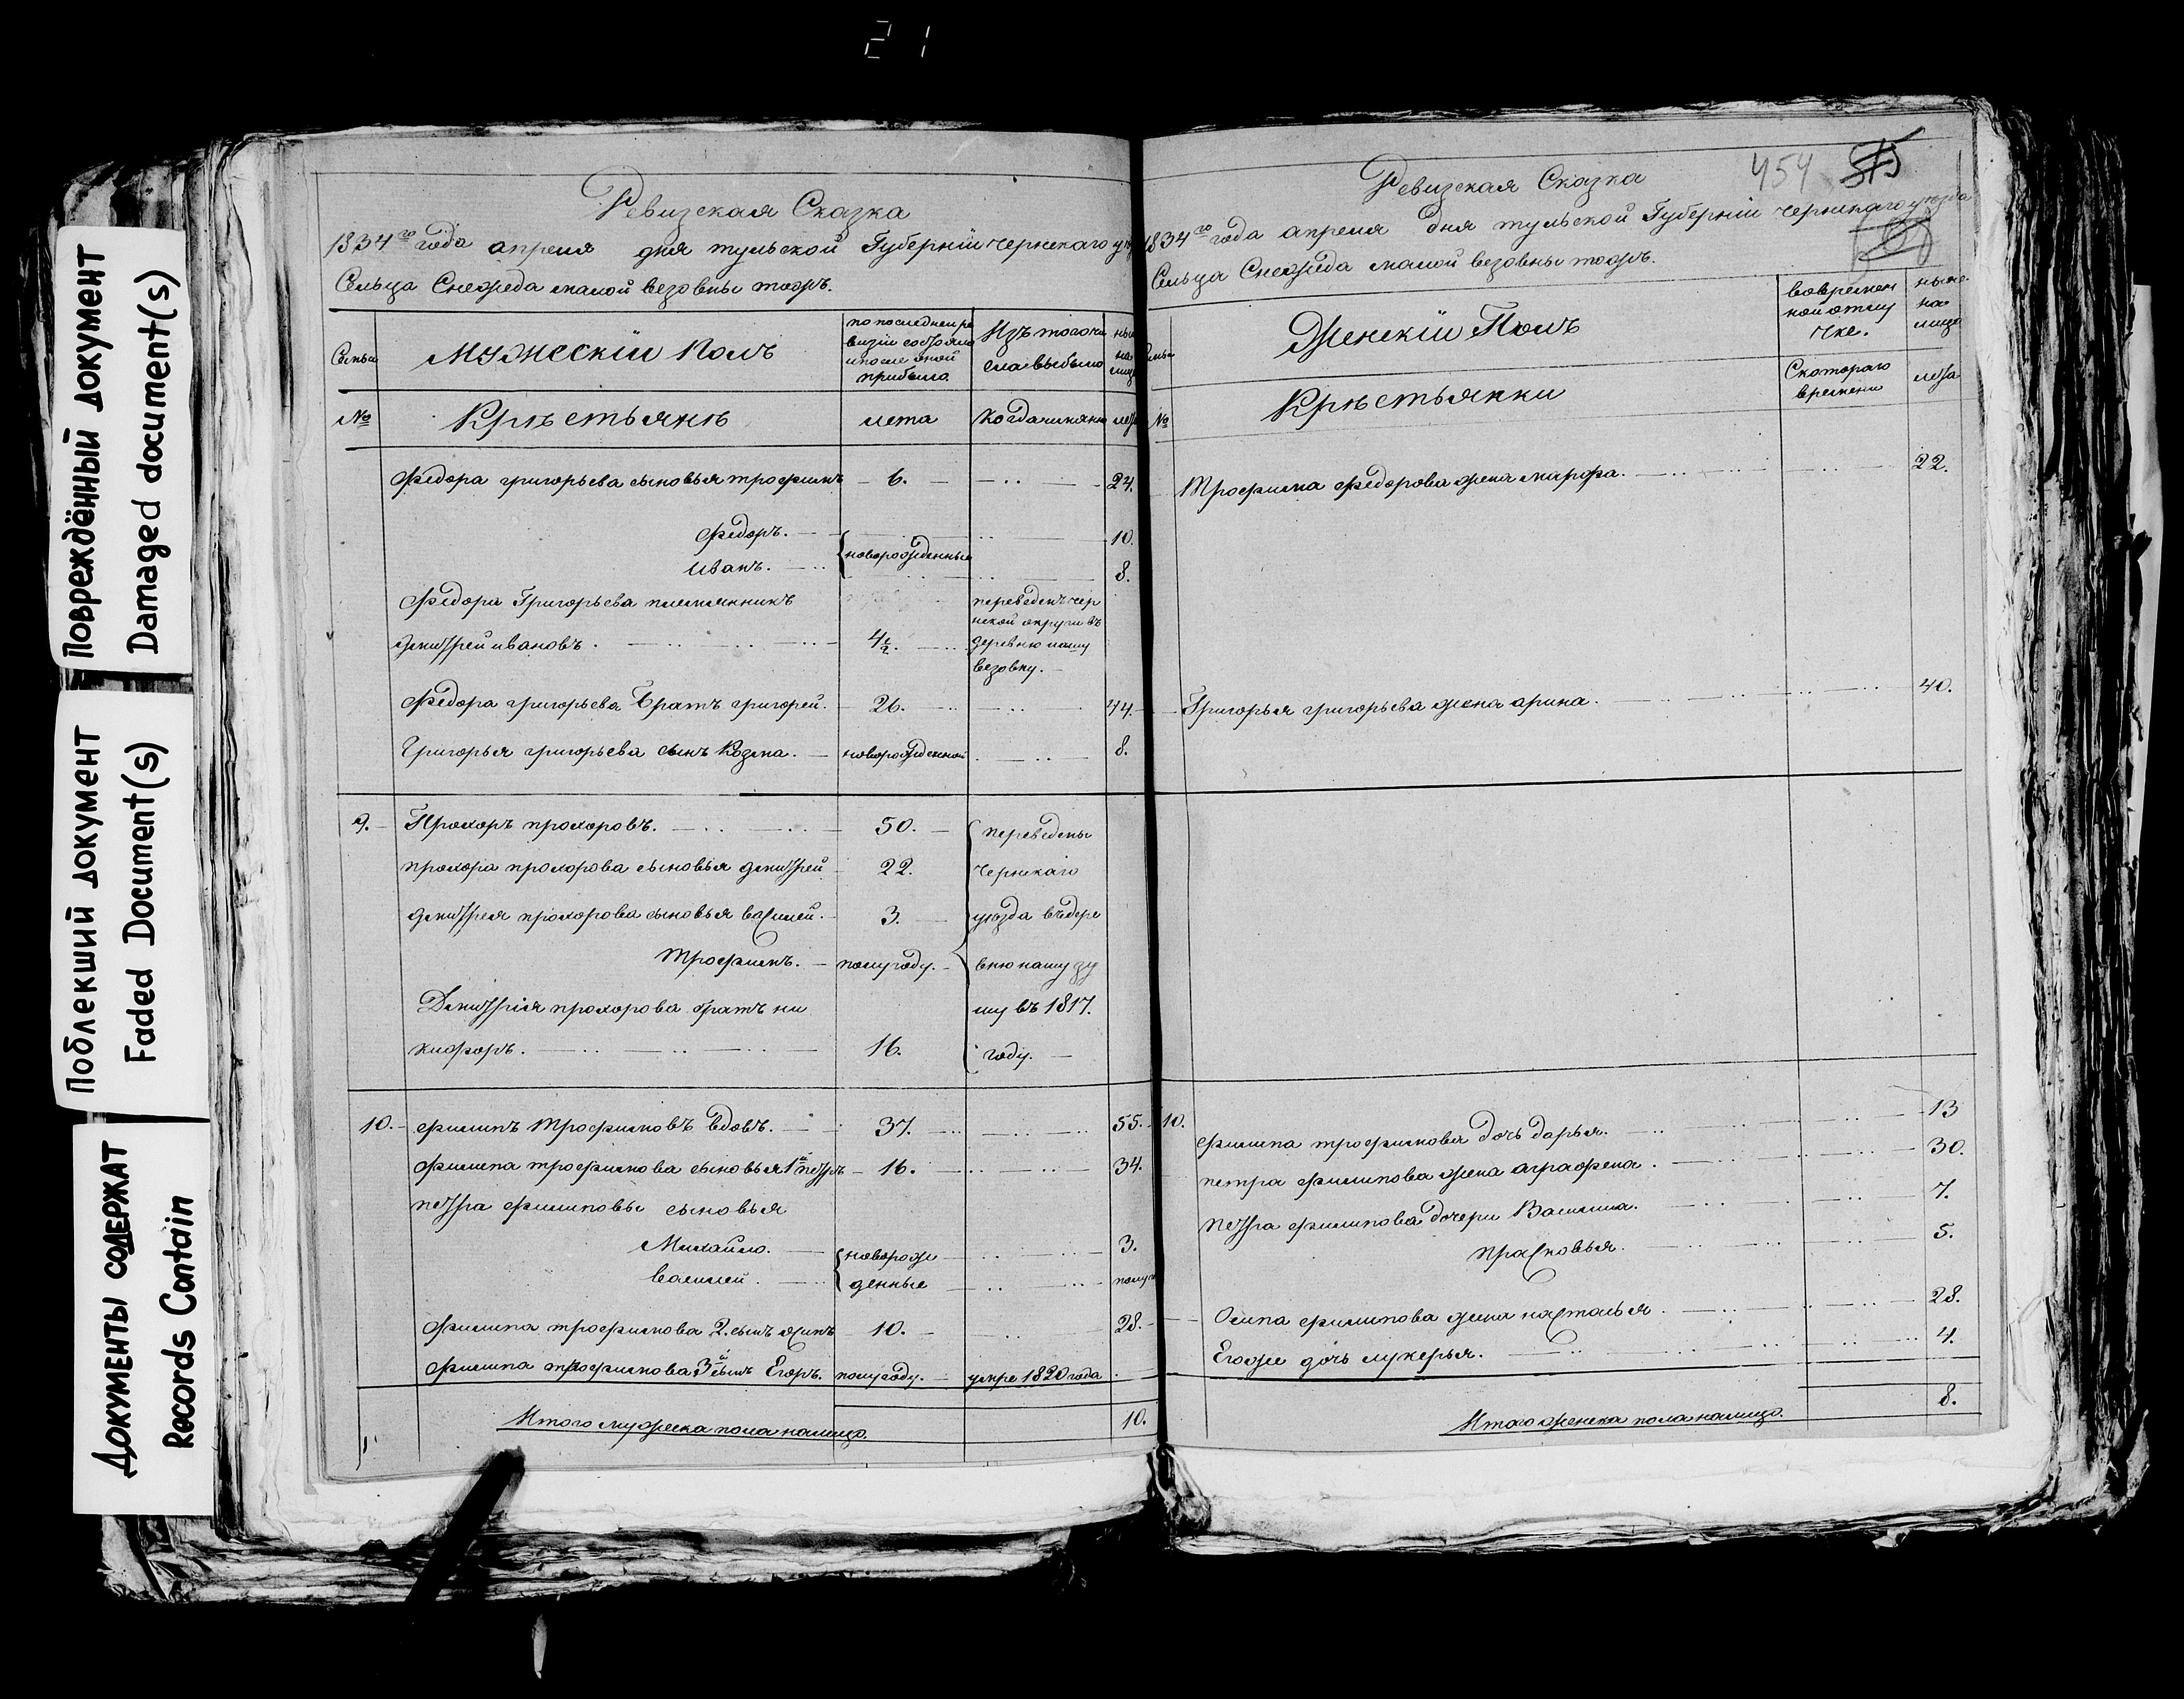 21
Повреждённый документ
Damaged document(s)
Поблекший документ
Faded Document(s)
Документы содержат
Records Contain
Ревизская Сказка
1834го года апреля дня тульской Губернiи чернскаго
Сельца Снежеда малой везовны тожъ.
Семьи
Мужескiй полъ
по последней ре
визiи состояло
и после оной
прибыло.
Изъ того чи
сла выбыло
№
Крѣстьянѣ
лета
Когда именно
Федора григорьева сыновья трофимъ — 6. — 24.
Федоръ. — 10.
новорожденные
Иванъ. — 8.
Федора Григорьева племянникъ
переведенъ чер
нской округи въ
дмитрей ивановъ. — 4½. —
деревню нашу
везовку. —
Федора григорьева братъ григорей. — 26. — 44.
Григорья григорьева сынъ Козма. — новорожденной — 8.
9. — Прохоръ прохоровъ. — 50. — переведены
прохора прохорова сыновья дмитрей — 22. чернскаго
дмитрея прохорова сыновья василей. — 3. — уюзда въ дере
Трофимъ. — полугоду. — вню нашу
Дмитрiя прохорова братъ ни
въ 1817.
кифоръ. — 16. году. —
10. — филипъ трофимовъ вдовъ. — 37. — 55.
филипа трофимова сыновья 1й петръ — 16. — 34.
петра филиповы сыновья
Михайло. — новорож — 3.
василей. — денные —
филипа трофимова 2. сынъ осипъ — 10. — 28.
филипа трофимова 3й сынъ Егоръ. полугоду. — умре 1820 года
Итого мужеска пола налицо. 10.
454 515
Ревизская Сказка
1834го года апреля дня тульской Губернiи чернскаго уѣзда
Сельца Снежеда малой везовны тожъ.
Женскiй Полъ
во времен
ной отлу
чке.
ныне
на
лицо
№
Крѣстьянки
Скотораго
времени
лета
Трофима федорова жена марфа. — 22.
Григорья григорьева жена арина. — 40.
10.
филипа трофимова дочь дарья. — 13
петра филипова жена аграфена. — 30.
петра филипова дочери Василиса. — 7.
прасковья. — 5.
Осипа филипова жена настасья. — 28.
Егоже дочь лукерья. — 4.
Итого женска пола налицо. 8.